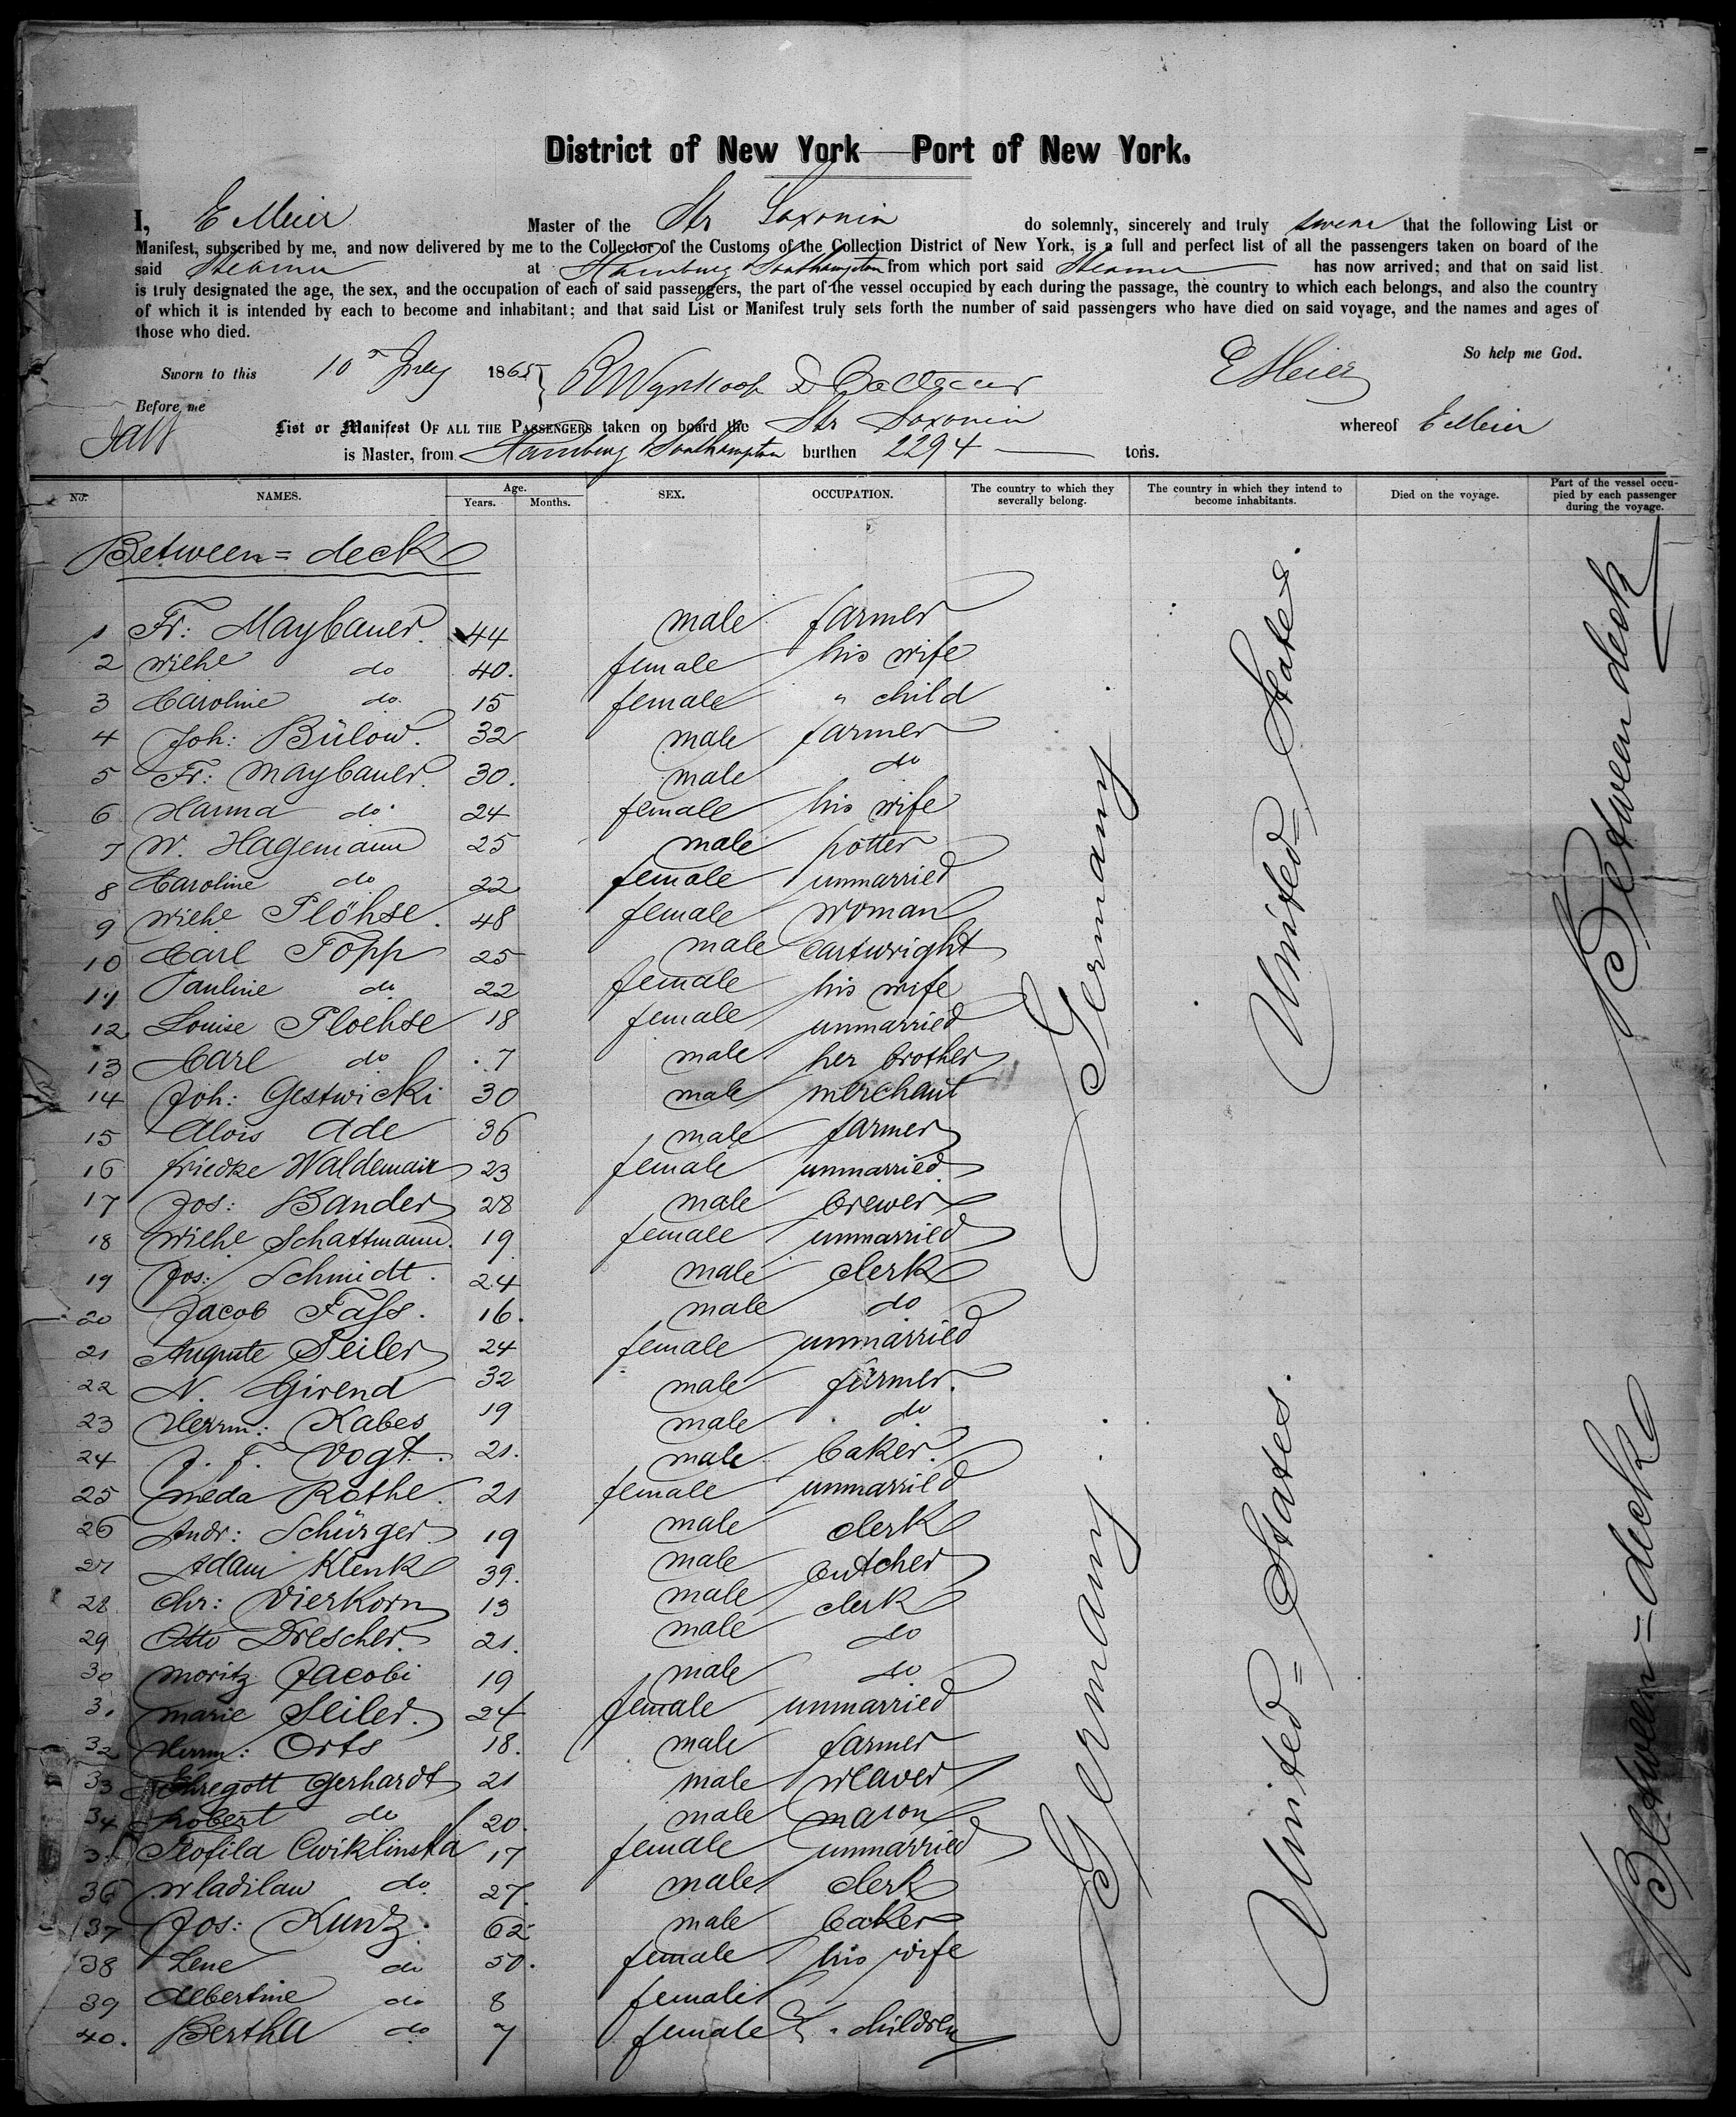 District of New York—Port of New York.
I, E Meier Master of the Str Saxonia do solemnly, sincerely and truly swear that the following List or
Manifest, subscribed by me, and now delivered by me to the Collector of the Customs of the Collection District of New York, is a full and perfect list of all the passengers taken on board of the
said Steamer at Hamburg & Southampton from which port said Steamer has now arrived; and that on said list
is truly designated the age, the sex, and the occupation of each of said passengers, the part of the vessel occupied by each during the passage, the country to which each belongs, and also the country
of which it is intended by each to become and inhabitant; and that said List or Manifest truly sets forth the number of said passengers who have died on said voyage, and the names and ages of
those who died.
So help me God.
Sworn to this 10 July 1865 E Meier
Before me
List or Manifest OF ALL THE PASSENGERS taken on board the Str Saxonia whereof E Meier
is Master, from Hamburg & Southampton burthen 2294 tons.
No. NAMES. Age. Years. Months. SEX. OCCUPATION. The country to which they severally belong. The country in which they intend to become inhabitants. Died on the voyage. Part of the vessel occupied by each passenger during the voyage.
Between=deck
1 Fr: Maybauer. 44 male farmer
2 Wilhe do 40. female his wife
3 Caroline do. 15 female " child
4 Joh: Bülow. 32 male farmer
5 Fr: Maybauer. 30. male do
6 Hanna do 24 female his wife
7 W. Hagemann 25 male potter
8 Caroline do 22 female unmarried
9 Wilhe Plöhse. 48 female woman
10 Carl Topp 25 male cartwright
11 Pauline do 22 female his wife
12 Louise Ploehse 18 female unmarried
13 Carl do 7 male her brother
14 Joh: Gestwicki 30 male merchant
15 Alois Ade 36 male farmer
16 Friedke Waldemair 23 female unmarried.
17 Jos: Bander 28 male brewer
18 Wilhe Schattmann. 19 female unmarried
19 Jos: Schmidt. 24 male clerk
20 Jacob Fass. 16. male do
21 Auguste Seiler 24 female unmarried
22 N. Girend 32 male farmer.
23 Herrm: Kabes 19 male do
24 J. F. Vogt. 21. male baker.
25 Meda Rothe. 21 female unmarried
26 Andr: Schürger 19 male clerk
27 Adam Klenk 39. male butcher
28 Chr: Vierkorn 13 male clerk
29 Otto Drescher. 21. male do
30 Moritz Jacobi 19 male do
31 Marie Seiler. 24 female unmarried
32 Herrm: Orts 18. male farmer
33 Ehregott Gerhardt 21 male weaver
34 Robert do 20. male mason
35 Teofila Cwiklinska 17 female unmarried
36 Wladilaw do 27. male clerk
37 Jos: Kunz. 62 male baker
38 Lene do 50. female his wife
39 Albertine do 8 female
40. Bertha do 7 female } " children
Germany.
United=States.
Between deck
Germany.
United=States.
Between=deck